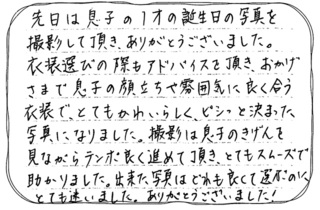 先日は息子の1才の誕生日の写真を
撮影して頂き、ありがとうございました。
衣装選びの際もアドバイスを頂き、おかげ
さまで息子の顔立ちや雰囲気に良く合う
衣装で、とてもかわいらしく、ビシッと決まった
写真になりました。撮影は息子のきげんを
見ながらテンポ良く進めて頂き、とてもスムーズで
助かりました。出来た写真はどれも良くて選ぶのに
とても迷いました。ありがとうございました!